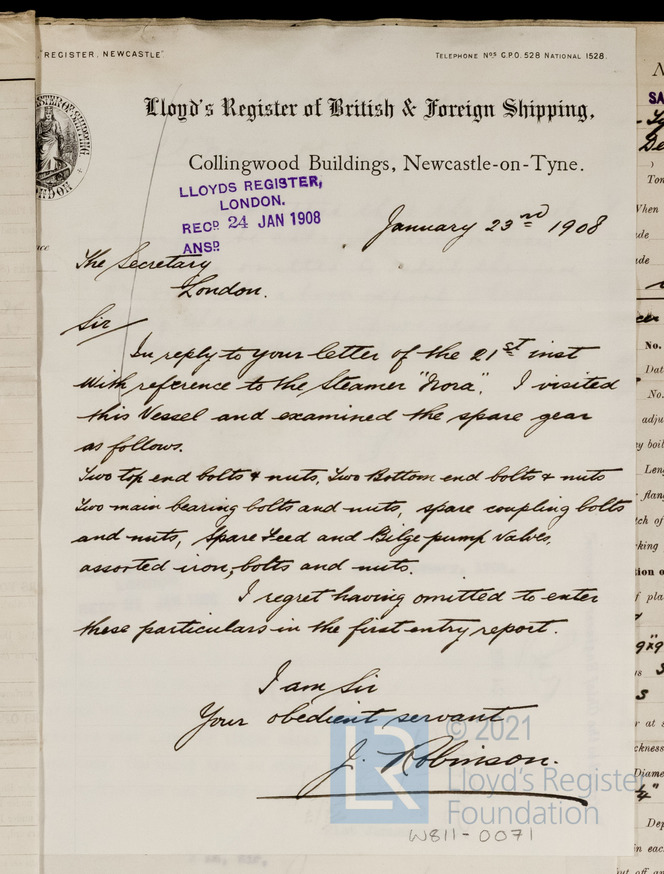 "REGISTER, NEWCASTLE"
TELEPHONE Nos G.P.O. 528 NATIONAL 1528.
Lloyd's Register of British & Foreign Shipping,
Collingwood Buildings, Newcastle-on-Tyne.
LLOYDS REGISTER,
LONDON.
RECD. 24 JAN 1908
ANSD.
January 23rd 1908
The Secretary
London.
Sir
In reply to your letter of the 21st inst
with reference to the Steamer "Nora", I visited
this Vessel and examined the spare gear
as follows.
Two top end bolts & nuts, Two Bottom end bolts & nuts
Two main bearing bolts and nuts, spare coupling bolts
and nuts, Spare Feed and Bilge pump valves,
assorted iron, bolts and nuts.
I regret having omitted to enter
these particulars in the first entry report.
I am Sir
Your obedient servant
J. Robinson.
LR © 2021
Lloyd's Register
Foundation
W811-0071